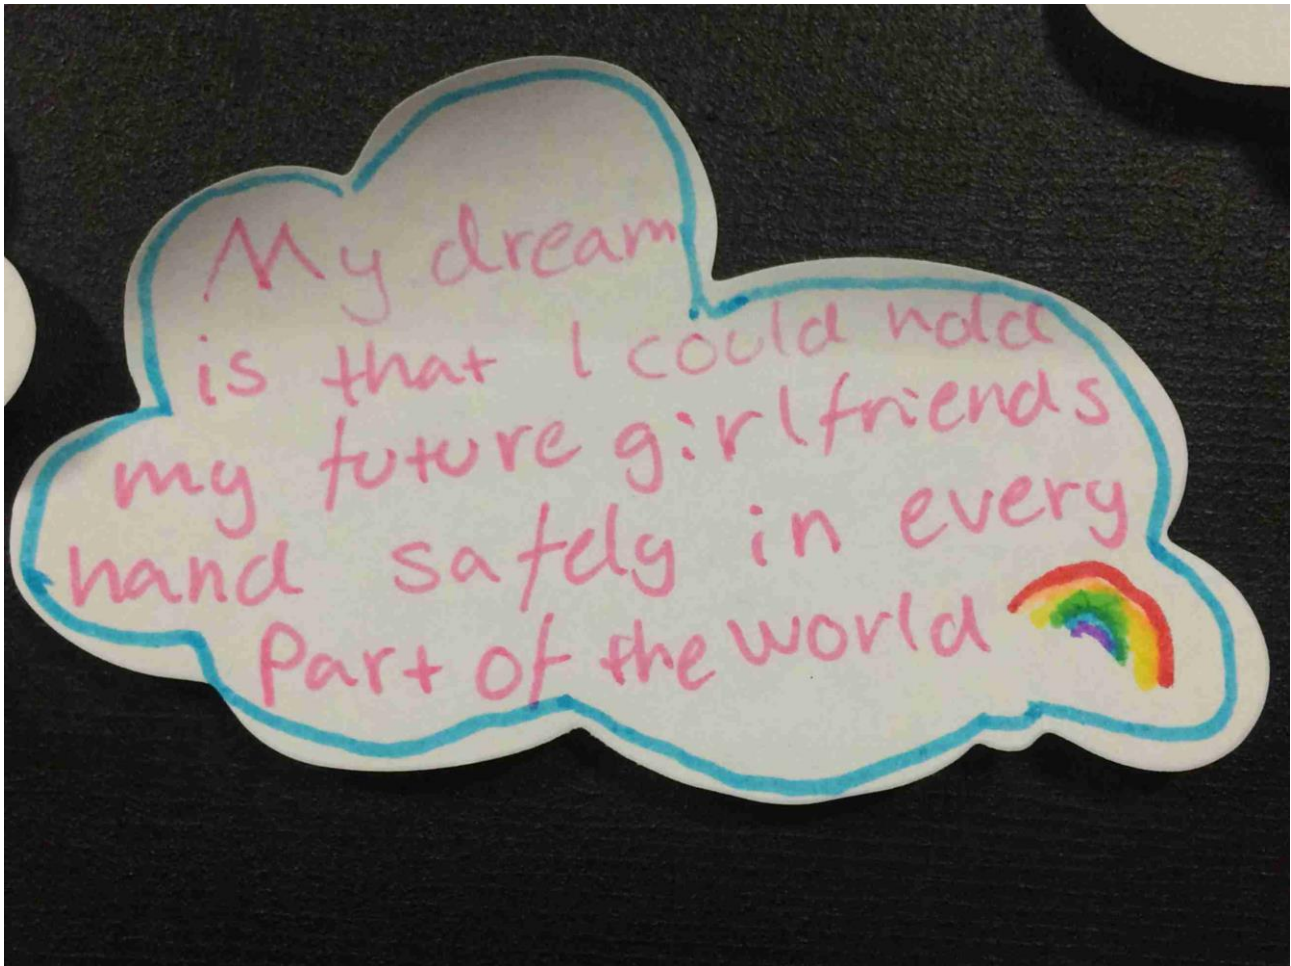 My dream
is that I could hold
my future girlfriends
hand safely in every
Part of the world